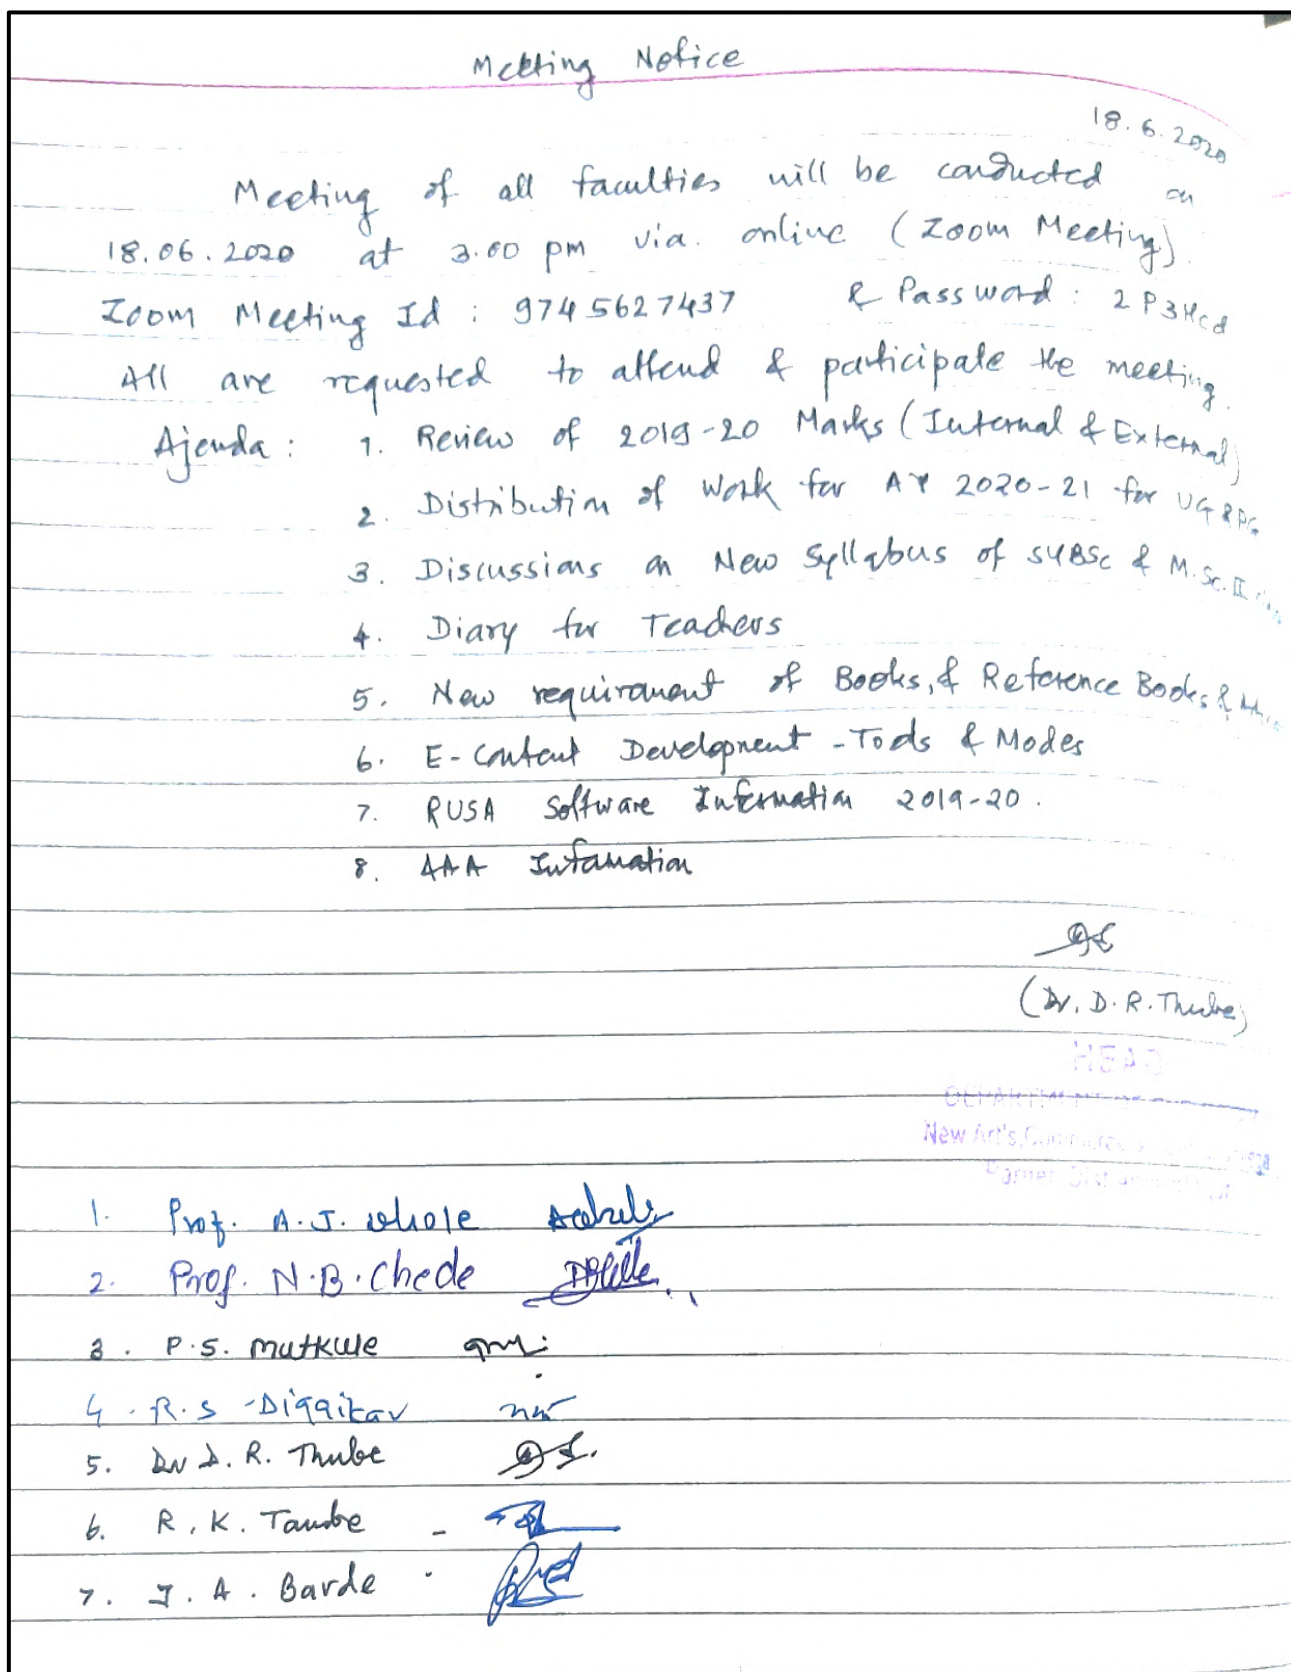 Meeting Notice
18.6.2020
Meeting of all faculties will be conducted on
18.06.2020 at 3.00 pm via. online (Zoom Meeting).
Zoom Meeting Id : 9745627437 & Password : 2P3Hcd
All are requested to attend & participate the meeting.
Ajenda : 1. Review of 2019-20 Marks (Internal & External)
2. Distribution of Work for AY 2020-21 for UG & PG
3. Discussions on New Syllabus of SYBSc & M.Sc. II
4. Diary for Teachers
5. New requirement of Books, & Reference Books &
6. E-Content Development - Tools & Modes
7. RUSA Software Information 2019-20.
8. AAA Information
(Dr. D. R. Thube)
HEAD
DEPARTMENT
New Art's,
Parner
1. Prof. A. J. whole
2. Prof. N. B. Chede
3. P. S. Mutkule
4. R. S - Diggikar
5. Dr D. R. Thube
6. R. K. Tambe -
7. J. A. Barde